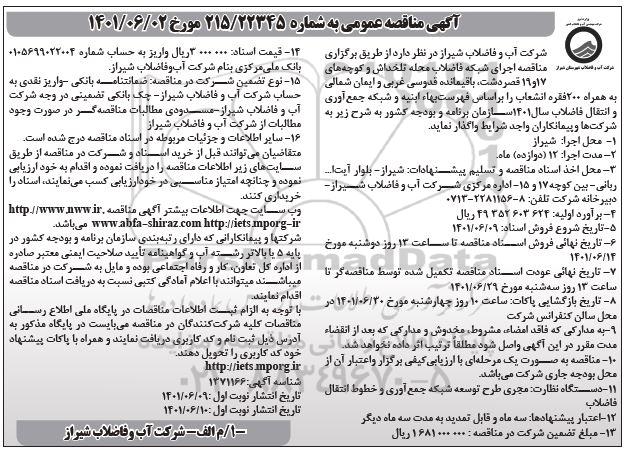 آگهی مناقصه عمومی به شماره ۲۱۵/۲۲۳۴۵ مورخ ۱۴۰۱/۰۶/۰۲
شرکت آب و فاضلاب شهرستان شیراز
شرکت آب و فاضلاب شیراز در نظر دارد از طریق برگزاری
مناقصه اجرای شبکه فاضلاب محله تلخداش و کوچه‌های
۱۷و۱۹ قصردشت، باقیمانده قدوسی غربی و ایمان شمالی
به همراه ۲۰۰فقره انشعاب را براساس فهرست‌بهاء ابنیه و شبکه جمع‌آوری
و انتقال فاضلاب سال۱۴۰۱سازمان برنامه و بودجه کشور به شرح زیر به
شرکت‌ها و پیمانکاران واجد شرایط واگذار نماید.
۱- محل اجرا: شیراز
۲-مدت اجرا: ۱۲ (دوازده) ماه.
۳- محل اخذ اسناد مناقصه و تسلیم پیشنهادات: شیراز- بلوار آیت‌ا...
ربانی- بین کوچه۱۷ و ۱۵-اداره مرکزی شرکت آب و فاضلاب شیراز-
دبیرخانه شرکت تلفن: ۸-۰۷۱۳-۲۲۸۱۱۵۶
۴-برآورد اولیه: ۶۲۴ ۶۰۳ ۳۵۲ ۴۹ ریال
۵-تاریخ شروع فروش اسناد: ۱۴۰۱/۰۶/۰۹
۶-تاریخ نهائی فروش اسناد مناقصه تا ساعت ۱۳ روز دوشنبه مورخ
۱۴۰۱/۰۶/۱۴
۷- تاریخ نهائی عودت اسناد مناقصه تکمیل شده توسط مناقصه‌گر تا
ساعت ۱۳ روز سه‌شنبه مورخ ۱۴۰۱/۰۶/۲۹
۸- تاریخ بازگشایی پاکات: ساعت ۱۰ روز چهارشنبه مورخ ۱۴۰۱/۰۶/۳۰ در
محل سالن کنفرانس شرکت
۹-به مدارکی که فاقد امضاء، مشروط، مخدوش و مدارکی که بعد از انقضاء
مدت مقرر در این آگهی واصل شود مطلقاً ترتیب اثر داده نخواهد شد.
۱۰-مناقصه به صورت یک مرحله‌ای با ارزیابی‌کیفی برگزار واعتبار آن از
محل بودجه جاری شرکت می‌باشد.
۱۱-دستگاه نظارت: مجری طرح توسعه شبکه جمع‌آوری و خطوط انتقال
فاضلاب
۱۲-اعتبار پیشنهادها: سه ماه و قابل تمدید به مدت سه ماه دیگر
۱۳- مبلغ تضمین شرکت در مناقصه : ۰۰۰ ۰۰۰ ۶۸۱ ۱ ریال
۱۴- قیمت اسناد: ۰۰۰ ۰۰۰ ۳ریال واریز به حساب شماره ۰۱۰۵۶۹۹۰۲۲۰۰۴
بانک ملی‌مرکزی بنام شرکت آب‌وفاضلاب شیراز.
۱۵-نوع تضمین شرکت در مناقصه: ضمانتنامه بانکی -واریز نقدی به
حساب شرکت آب و فاضلاب شیراز- چک بانکی تضمینی در وجه شرکت
آب و فاضلاب شیراز-مسدودی مطالبات مناقصه‌گر در صورت وجود
مطالبات از شرکت آب و فاضلاب شیراز
۱۶- سایر اطلاعات و جزئیات مربوطه در اسناد مناقصه درج شده است.
متقاضیان می‌توانند قبل از خرید اسناد و شرکت در مناقصه از طریق
سایت‌های زیر اطلاعات مناقصه را دریافت نموده و اقدام به خود ارزیابی
نموده و چنانچه امتیاز مناسبی در خودارزیابی کسب می‌نمایند، اسناد را
خریداری کنند.
وب سایت جهت اطلاعات بیشتر آگهی مناقصه http://www.nww.ir,
www.abfa-shiraz.com http://iets.mporg-ir می‌باشد.
شرکتها و پیمانکارانی که دارای رتبه‌بندی سازمان برنامه و بودجه کشور در
پایه ۵ یا بالاتر رشته آب و گواهینامه تأیید صلاحیت ایمنی معتبر صادره
از اداره کل تعاون، کار و رفاه اجتماعی بوده و مایل به شرکت در مناقصه
میباشند میتوانند با اعلام آمادگی کتبی نسبت به دریافت اسناد مناقصه
اقدام نمایند.
با توجه به الزام ثبت اطلاعات مناقصات در پایگاه ملی اطلاع رسانی
مناقصات کلیه شرکت‌کنندگان در مناقصه می‌بایست در پایگاه مذکور به
آدرس ذیل ثبت نام و کد کاربری دریافت نمایند و همراه با پاکات پیشنهاد
خود کد کاربری را تحویل دهند.
http://iets.mporg.ir
شناسه آگهی: ۱۳۷۱۱۶۶
تاریخ انتشار نوبت اول: ۱۴۰۱/۰۶/۰۹
تاریخ انتشار نوبت اول: ۱۴۰۱/۰۶/۱۰
۱۰/م الف- شرکت آب وفاضلاب شیراز